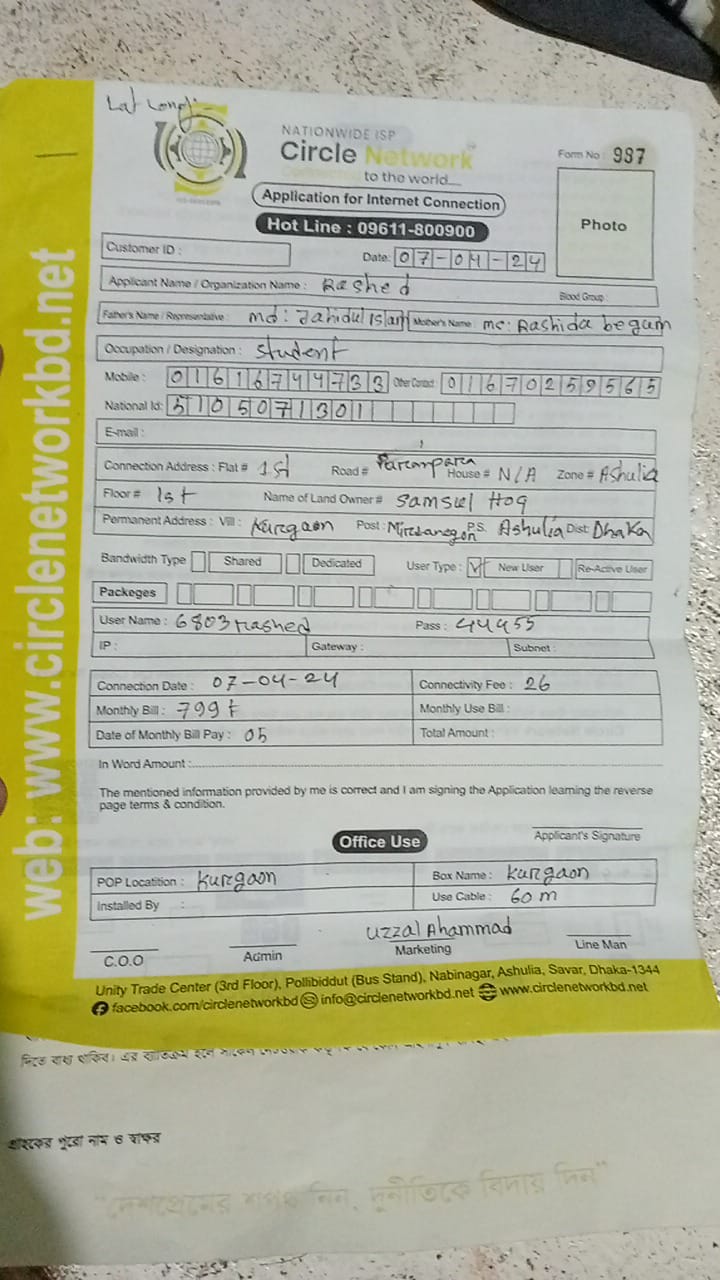 Lat Long
NATIONWIDE ISP
Circle Network
to the world....
Form No : 987
Application for Internet Connection
Hot Line : 09611-800900
Photo
Customer ID :
Date: 07-04-24
Applicant Name / Organization Name : Rashed
Blood Group :
Father's Name / Representative : md: Jahidul Islam Mother's Name : ms: Rashida begum
Occupation / Designation : Student
Mobile : 01616744733 Other Contact : 01670259565
National Id: 5105071301
E-mail :
Connection Address : Flat # 1st Road # House # N/A Zone # Ashulia
Floor # 1st Name of Land Owner # Samsul Hoq
Permanent Address : Vill : Kurgaon Post : P.S. Ashulia Dist: Dhaka
Bandwidth Type Shared Dedicated User Type : New User Re-Active User
Packeges
User Name : 6803rashed Pass : 44455
IP : Gateway : Subnet :
Connection Date : 07-04-24 Connectivity Fee : 26
Monthly Bill : 799 t Monthly Use Bill :
Date of Monthly Bill Pay : 05 Total Amount :
In Word Amount :
The mentioned information provided by me is correct and I am signing the Application learning the reverse
page terms & condition.
Applicant's Signature
Office Use
POP Locatition : Kurgaon Box Name : Kurgaon
Installed By : Use Cable : 60 m
Uzzal Ahammad
C.O.O Admin Marketing Line Man
Unity Trade Center (3rd Floor), Pollibiddut (Bus Stand), Nabinagar, Ashulia, Savar, Dhaka-1344
facebook.com/circlenetworkbd info@circlenetworkbd.net www.circlenetworkbd.net
web: www.circlenetworkbd.net
দিতে বাধ্য থাকিব। এর ব্যতিক্রম হলে
গ্রাহকের পুরো নাম ও স্বাক্ষর
"দেশপ্রেমের শপথ নিন, দুর্নীতিকে বিদায় দিন"